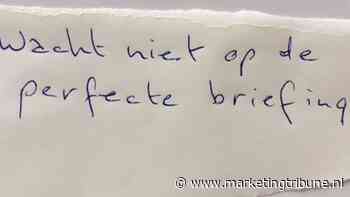 Wacht niet op de
perfecte briefing
© www.marketingtribune.nl